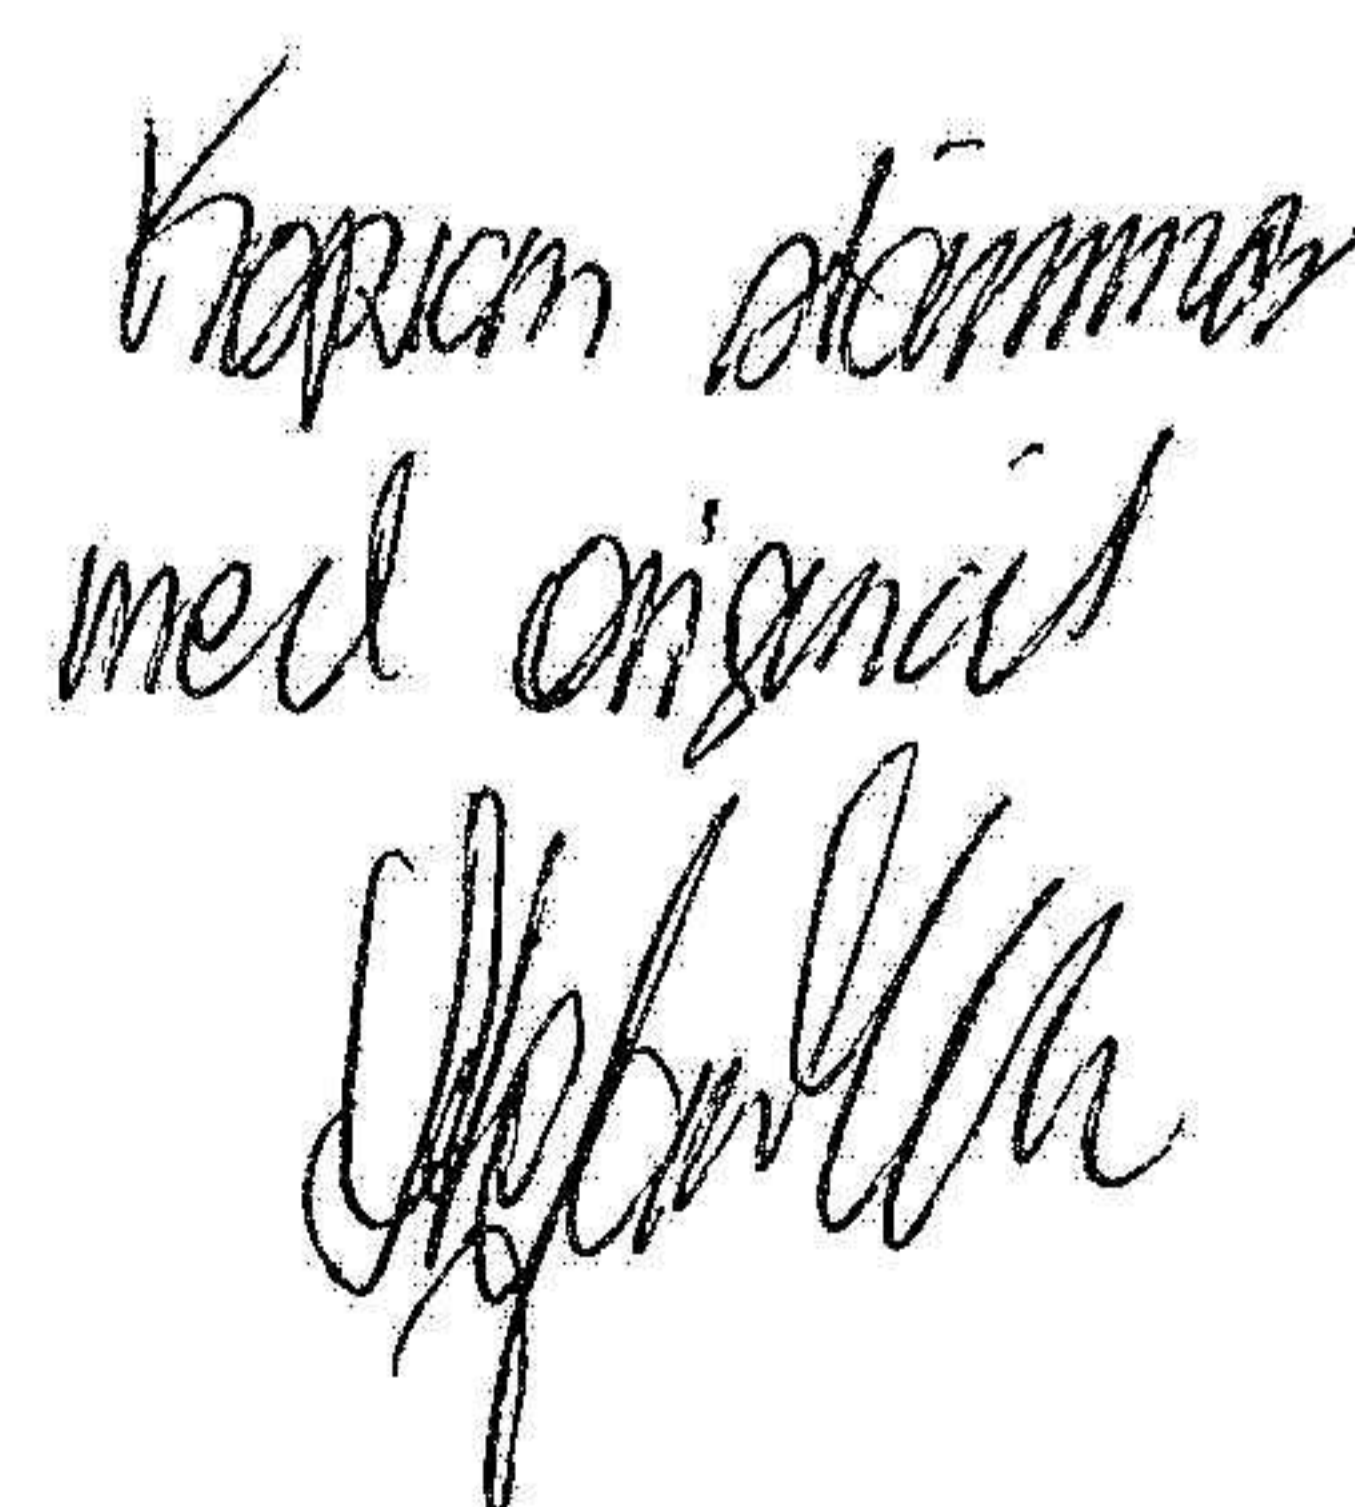 Kopian stämmer
med original